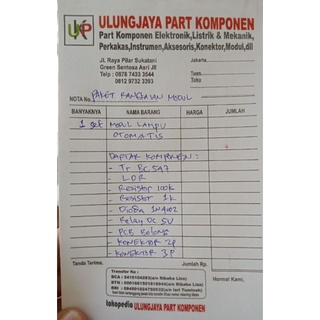 UKP
ULUNGJAYA PART KOMPONEN
Part Komponen Elektronik,Listrik & Mekanik,
Perkakas,Instrumen,Aksesoris,Konektor,Modul,dll
Jl. Raya Pilar Sukatani
Green Sentosa Asri Jl
Telp : 0878 7433 3544
0812 9732 3393
Jakarta,
Tuan
Toko
NOTA No. PAKET RANGKAIAN MODUL
BANYAKNYA NAMA BARANG HARGA JUMLAH
1 set MODUL LAMPU
OTOMATIS
DAFTAR KOMPONEN :
- Tr BC 547
- LDR
- Resistor 100K
- Resistor 1K
- Dioda 1N4002
- Relay DC 5V
- PCB Bolong
- KONEKTOR 2P
- KONEKTOR 3P
Tanda Terima, Jumlah Rp.
Transfer Ke :
Hormat Kami,
tokopedia ULUNGJAYA PART KOMPONEN